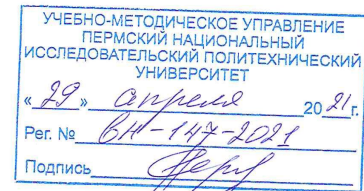 УЧЕБНО-МЕТОДИЧЕСКОЕ УПРАВЛЕНИЕ
ПЕРМСКИЙ НАЦИОНАЛЬНЫЙ
ИССЛЕДОВАТЕЛЬСКИЙ ПОЛИТЕХНИЧЕСКИЙ
УНИВЕРСИТЕТ
«29» апреля 2021г.
Рег. № ВН-147-2021
Подпись